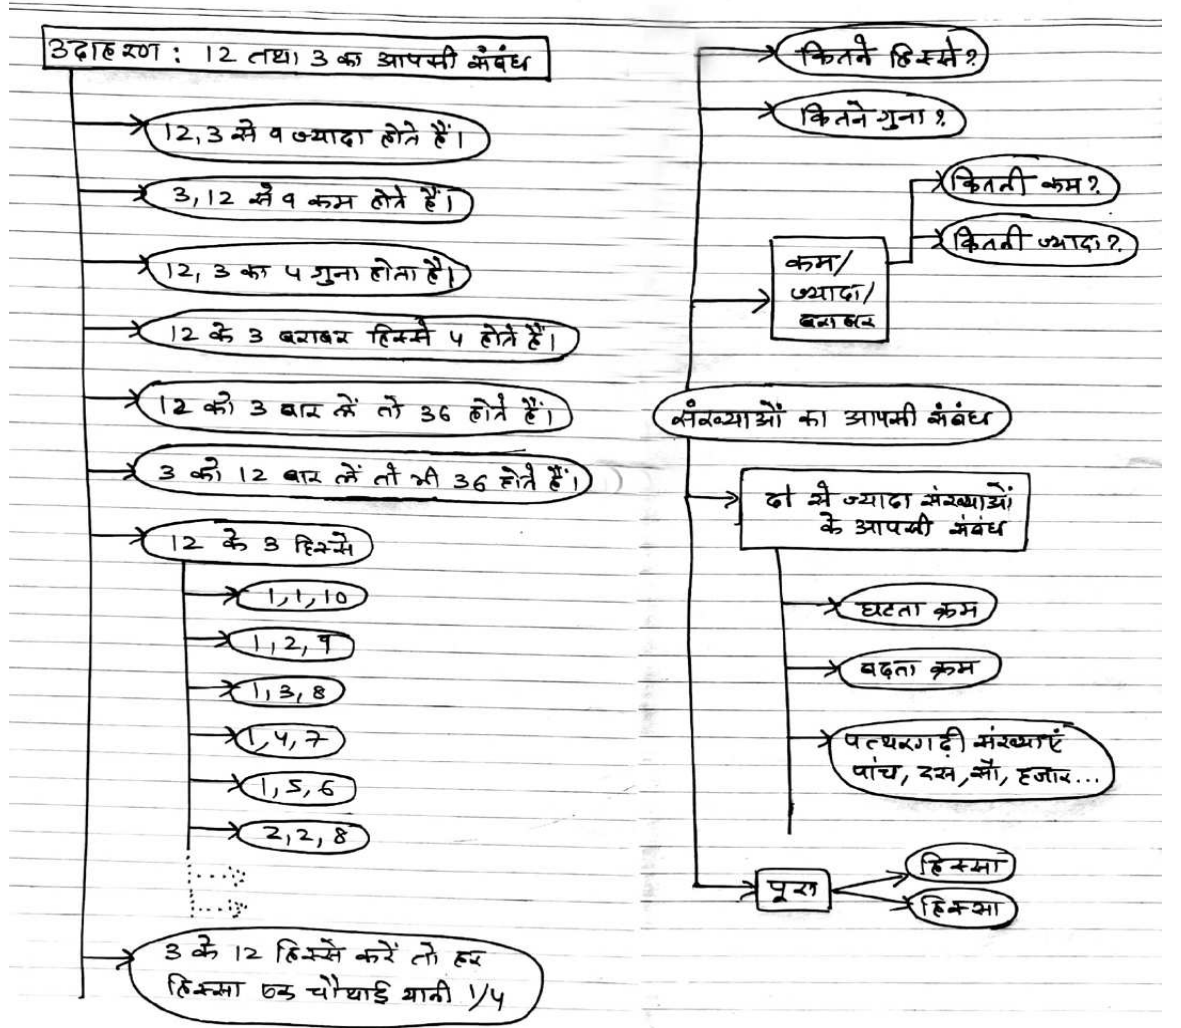 उदाहरण : 12 तथा 3 का आपसी संबंध
12, 3 से 9 ज्यादा होते हैं।
3, 12 से 9 कम होते हैं।
12, 3 का 4 गुना होता है।
12 के 3 बराबर हिस्से 4 होते हैं।
12 को 3 बार लें तो 36 होते हैं।
3 को 12 बार लें तो भी 36 होते हैं।
12 के 3 हिस्से
1, 1, 10
1, 2, 9
1, 3, 8
1, 4, 7
1, 5, 6
2, 2, 8
3 के 12 हिस्से करें तो हर
हिस्सा एक चौथाई यानी 1/4
कितने हिस्से?
कितने गुना?
कितनी कम?
कितनी ज्यादा?
कम/
ज्यादा/
बराबर
संख्याओं का आपसी संबंध
दो से ज्यादा संख्याओं
के आपसी संबंध
घटता क्रम
बढ़ता क्रम
पत्थरगढ़ी संख्याएं
पांच, दस, सौ, हजार...
पूरा
हिस्सा
हिस्सा